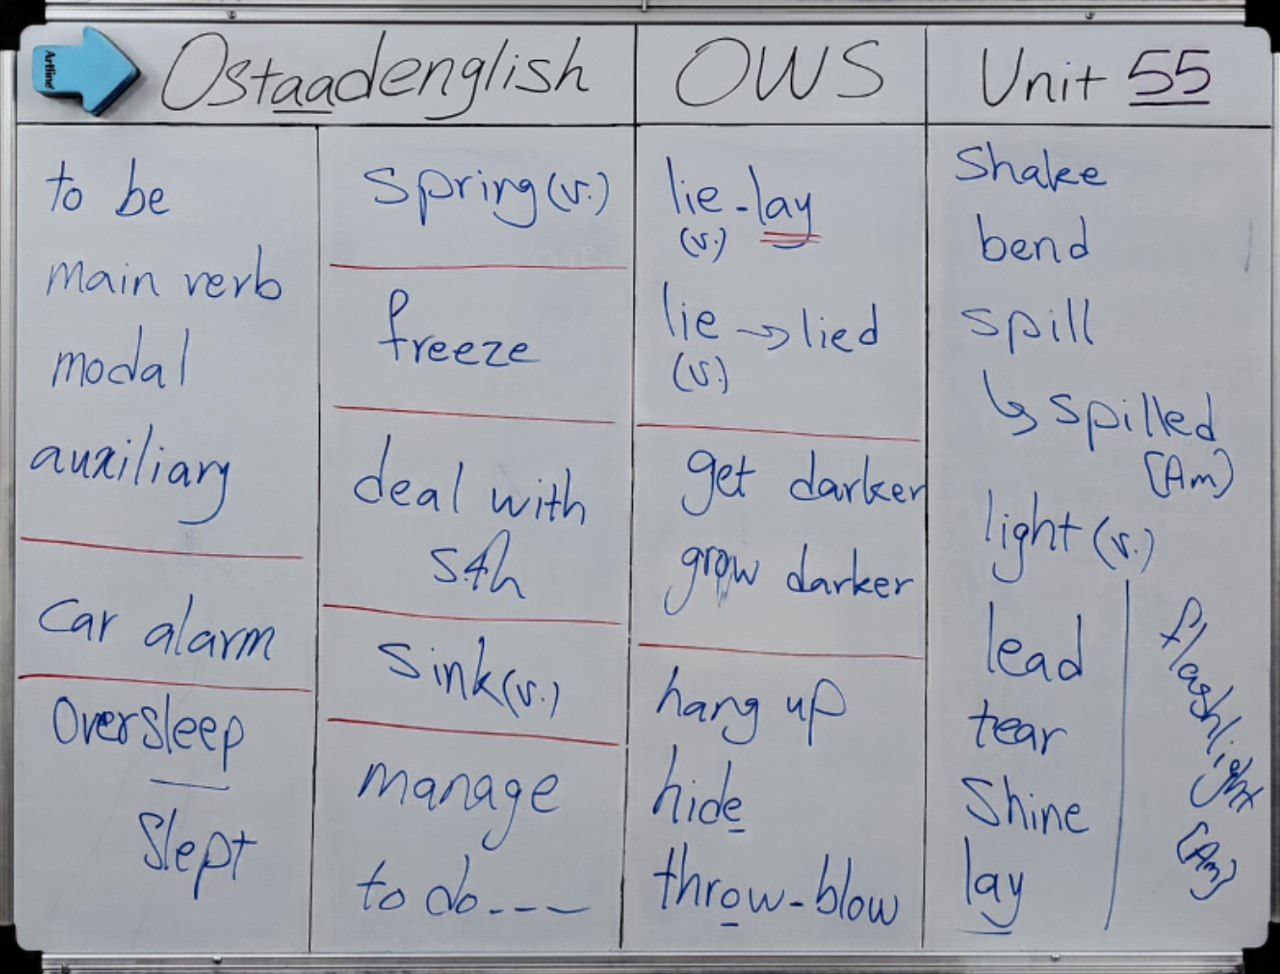 Artline
Ostaadenglish
OWS
Unit 55
to be
main verb
modal
auxiliary
car alarm
Oversleep
slept
spring (v.)
freeze
deal with
sth
sink (v.)
manage
to do - - -
lie - lay
(v.)
lie → lied
(v.)
get darker
grow darker
hang up
hide
throw - blow
shake
bend
spill
↳ spilled
(Am)
light (v.)
lead
tear
shine
lay
flashlight
(Am)